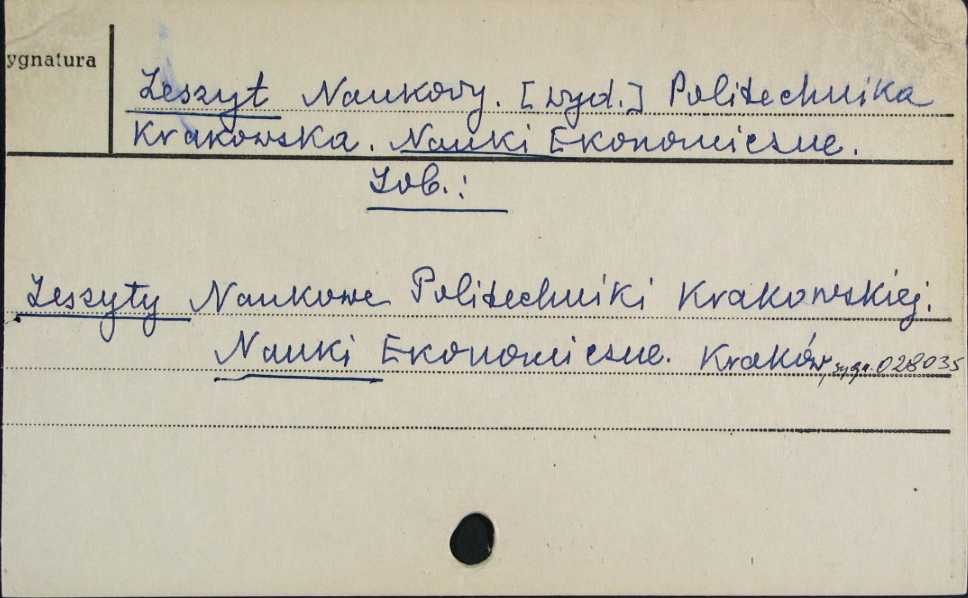 ygnatura
Zeszyt Naukowy. [wyd.] Politechnika
Krakowska. Nauki Ekonomiczne.
Zob.:
Zeszyty Naukowe Politechniki Krakowskiej.
Nauki Ekonomiczne. Kraków, sygn. 028035